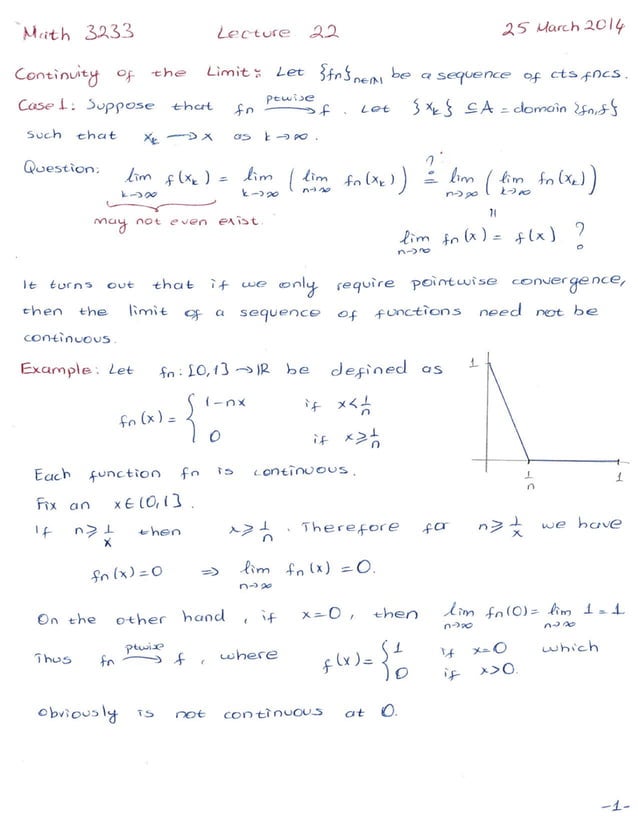 Math 3233 Lecture 22 25 March 2014
Continuity of the Limit: Let {fn}n∈ℕ be a sequence of cts fncs.
Case 1: Suppose that fn ⟶(ptwise) f. Let {xk} ⊆ A = domain {fn,f}
such that xk → x as k→∞.
Question: lim k→∞ f(xk) = lim k→∞ ( lim n→∞ fn(xk) ) =? lim n→∞ ( lim k→∞ fn(xk) )
may not even exist.
=
lim n→∞ fn(x) = f(x) ?
It turns out that if we only require pointwise convergence,
then the limit of a sequence of functions need not be
continuous.
Example: Let fn: [0,1] → ℝ be defined as
fn(x) = { 1-nx if x < 1/n
0 if x ≥ 1/n
1
1/n 1
Each function fn is continuous.
Fix an x ∈ (0,1].
If n ≥ 1/x then x ≥ 1/n. Therefore for n ≥ 1/x we have
fn(x) = 0 ⇒ lim n→∞ fn(x) = 0.
On the other hand, if x=0, then lim n→∞ fn(0) = lim n→∞ 1 = 1
Thus fn ⟶(ptwise) f, where f(x) = { 1 if x=0 which
0 if x>0.
obviously is not continuous at 0.
-1-